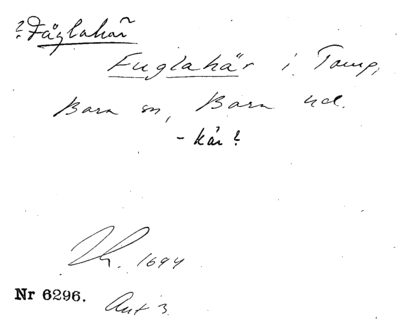 ? Fåglahär
Fuglahär i Torup,
Bara sn, Bara hd.
- kär?
1694
Nr 6296. Avt 3